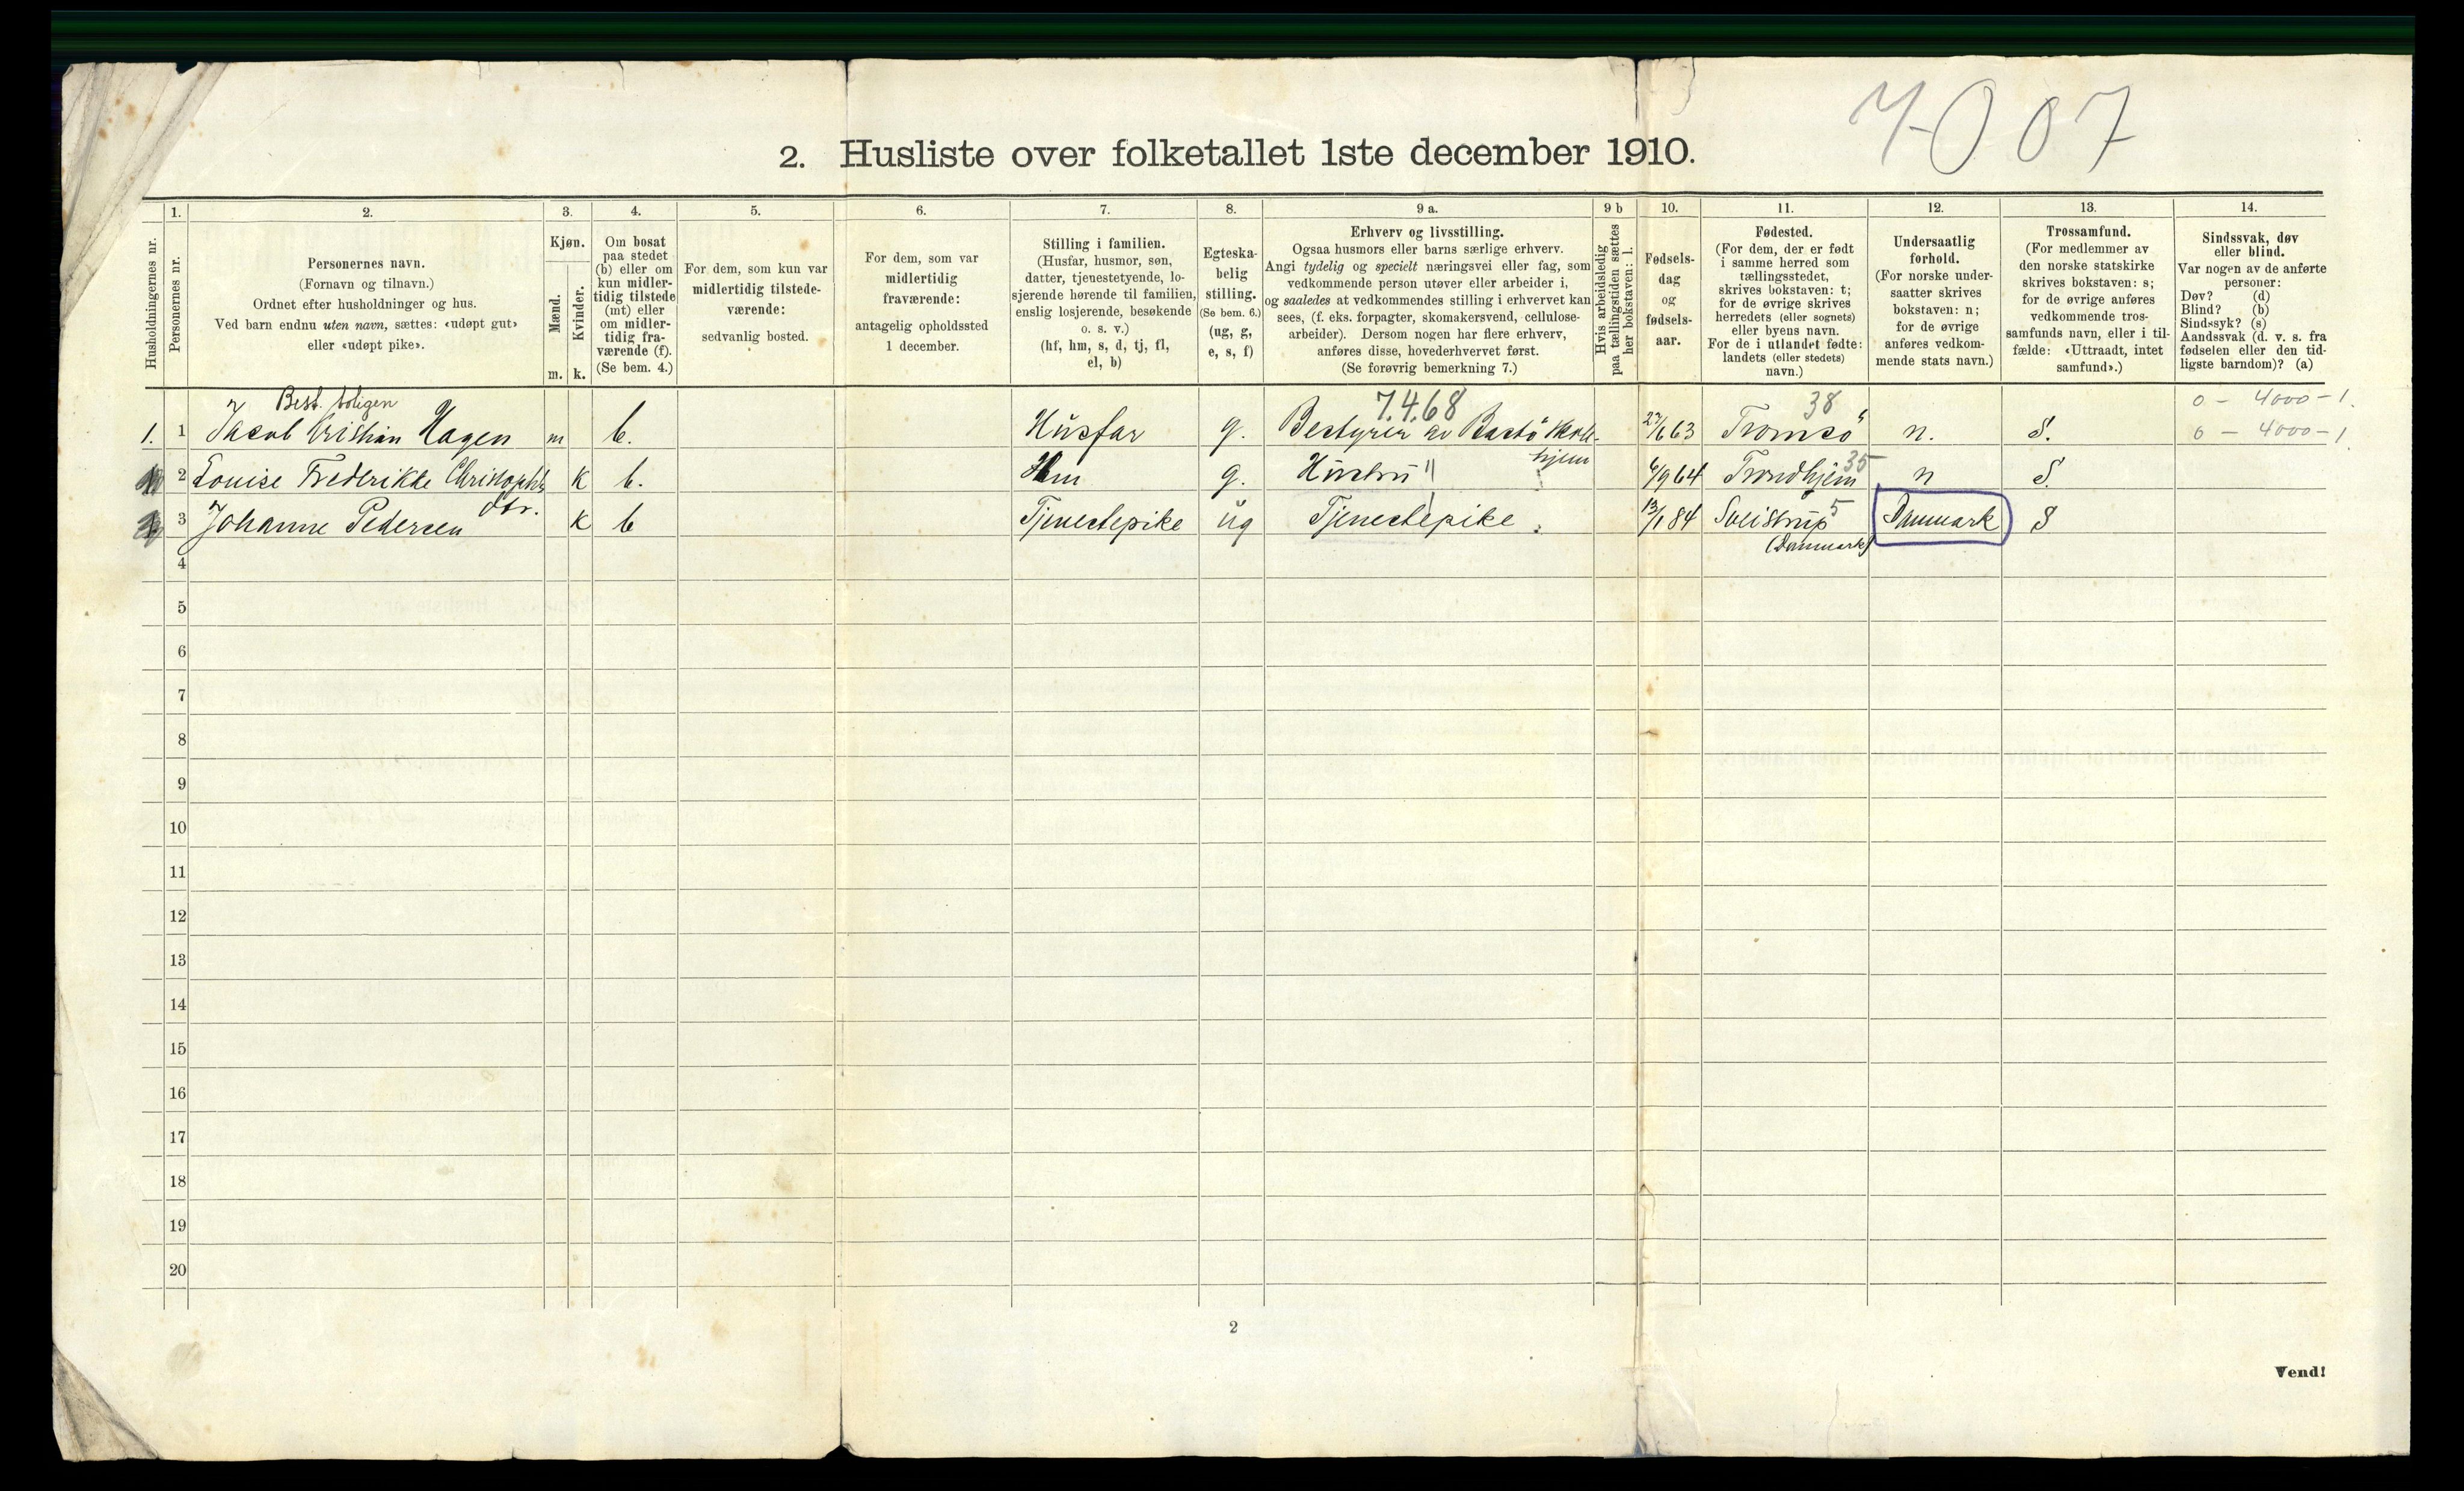 7007
2. Husliste over folketallet 1ste december 1910.
1. 2. 3. 4. 5. 6. 7. 8. 9 a. 9 b 10. 11. 12. 13. 14.
Husholdningernes nr.
Personernes nr.
Personernes navn.
(Fornavn og tilnavn.)
Ordnet efter husholdninger og hus.
Ved barn endnu uten navn, sættes: «udøpt gut»
eller «udøpt pike».
Kjøn.
Mænd.
Kvinder.
m. k.
Om bosat
paa stedet
(b) eller om
kun midler-
tidig tilstede
(mt) eller
om midler-
tidig fra-
værende (f).
(Se bem. 4.)
For dem, som kun var
midlertidig tilstede-
værende:
sedvanlig bosted.
For dem, som var
midlertidig
fraværende:
antagelig opholdssted
1 december.
Stilling i familien.
(Husfar, husmor, søn,
datter, tjenestetyende, lo-
sjerende hørende til familien,
enslig losjerende, besøkende
o. s. v.)
(hf, hm, s, d, tj, fl,
el, b)
Egteska-
belig
stilling.
(Se bem. 6.)
(ug, g,
e, s, f)
Erhverv og livsstilling.
Ogsaa husmors eller barns særlige erhverv.
Angi tydelig og specielt næringsvei eller fag, som
vedkommende person utøver eller arbeider i,
og saaledes at vedkommendes stilling i erhvervet kan
sees, (f. eks. forpagter, skomakersvend, cellulose-
arbeider). Dersom nogen har flere erhverv,
anføres disse, hovederhvervet først.
(Se forøvrig bemerkning 7.)
Hvis arbeidsledig
paa tællingstiden sættes
her bokstaven: l.
Fødsels-
dag
og
fødsels-
aar.
Fødested.
(For dem, der er født
i samme herred som
tællingsstedet,
skrives bokstaven: t;
for de øvrige skrives
herredets (eller sognets)
eller byens navn.
For de i utlandet fødte:
landets (eller stedets)
navn.)
Undersaatlig
forhold.
(For norske under-
saatter skrives
bokstaven: n;
for de øvrige
anføres vedkom-
mende stats navn.)
Trossamfund.
(For medlemmer av
den norske statskirke
skrives bokstaven: s;
for de øvrige anføres
vedkommende tros-
samfunds navn, eller i til-
fælde: «Uttraadt, intet
samfund».)
Sindssvak, døv
eller blind.
Var nogen av de anførte
personer:
Døv? (d)
Blind? (b)
Sindssyk? (s)
Aandssvak (d. v. s. fra
fødselen eller den tid-
ligste barndom)? (a)
Best. boligen 7.4.68 38 0 - 4000 - 1.
1. 1 Jacob Cristian Hagen m b. Husfar g. Bestyrer av Bastö Skole- 27/6 63 Tromsö n. S. 0 - 4000 - 1
hjem
2 Louise Frederikke Christophs k b. Hm g. Hustru " 6/9 64 Trondhjem 35 n S.
dtr.
3 Johanne Pedersen k b Tjenestepike ug Tjenestepike 13/1 84 5 Danmark S
(Danmark)
4
5
6
7
8
9
10
11
12
13
14
15
16
17
18
19
20
2
Vend!